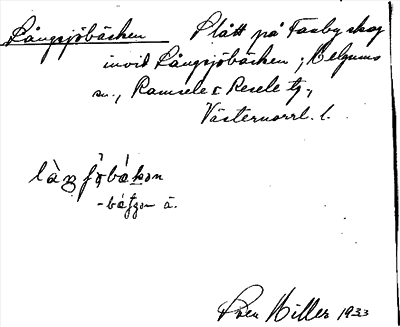 Långsjöbäcken Slått på Tasby skog
invid Långsjöbäcken, Helgums
sn., Ramsele o Resele tg.,
Västernorrl. l.
làŋ ʃǫ̀bákən
- bátʃən ä.
Sven Hiller 1933